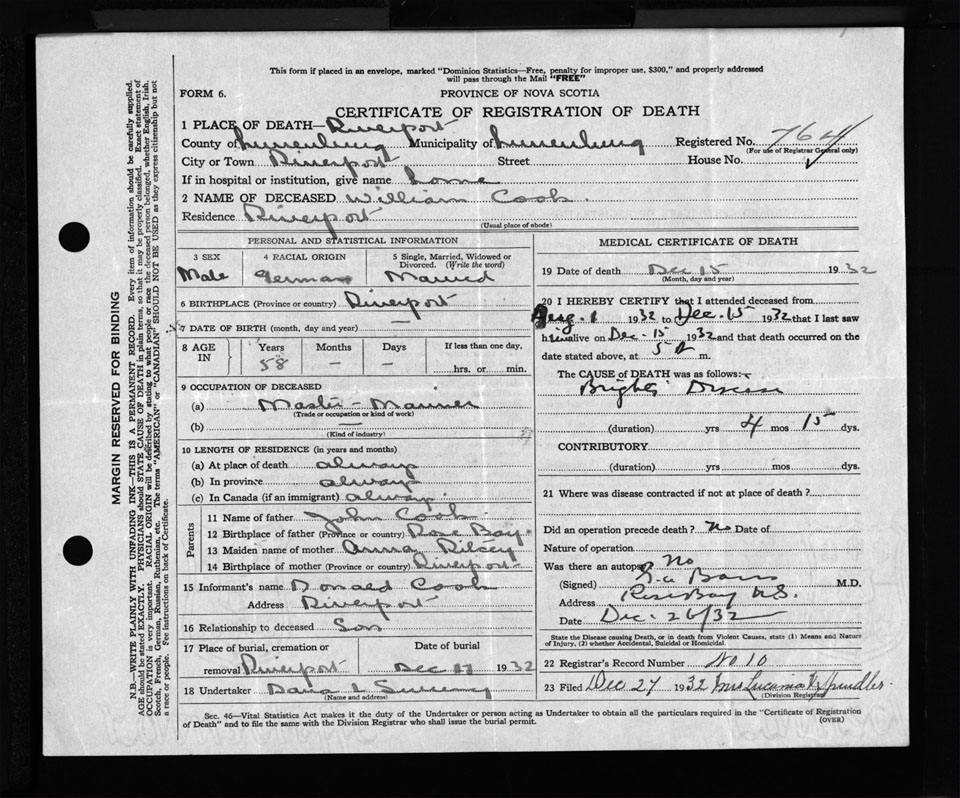 This form if placed in an envelope, marked "Dominion Statistics—Free, penalty for improper use, $300," and properly addressed
will pass through the Mail "FREE"
FORM 6.
PROVINCE OF NOVA SCOTIA
CERTIFICATE OF REGISTRATION OF DEATH
1 PLACE OF DEATH— Riverport
County of Lunenburg Municipality of Lunenburg Registered No. 764
(For use of Registrar General only)
City or Town Riverport Street House No.
If in hospital or institution, give name home
2 NAME OF DECEASED William Cook.
Residence Riverport
(Usual place of abode)
PERSONAL AND STATISTICAL INFORMATION
3 SEX 4 RACIAL ORIGIN 5 Single, Married, Widowed or
Divorced. (Write the word)
Male German Married
6 BIRTHPLACE (Province or country) Riverport
7 DATE OF BIRTH (month, day and year) —
8 AGE IN Years Months Days If less than one day,
58 – – hrs. or min.
9 OCCUPATION OF DECEASED
(a) Master-Mariner
(Trade or occupation or kind of work)
(b) —
(Kind of industry)
10 LENGTH OF RESIDENCE (in years and months)
(a) At place of death always
(b) In province always
(c) In Canada (if an immigrant) always
Parents
11 Name of father John Cook
12 Birthplace of father (Province or country) Rose Bay.
13 Maiden name of mother Anna
14 Birthplace of mother (Province or country) Riverport
15 Informant's name Donald Cook
Address Riverport
16 Relationship to deceased Son
17 Place of burial, cremation or Date of burial
removal Riverport Dec 17 1932
18 Undertaker Dana L Sweeny
(Name and address)
MEDICAL CERTIFICATE OF DEATH
19 Date of death Dec 15 1932
(Month, day and year)
20 I HEREBY CERTIFY that I attended deceased from
Aug. 1 1932 to Dec. 15 1932 that I last saw
him alive on Dec-15 1932 and that death occurred on the
date stated above, at 5 a m.
The CAUSE of DEATH was as follows:
Brights Disease
(duration) yrs 4 mos 15 dys.
CONTRIBUTORY
(duration) yrs mos dys.
21 Where was disease contracted if not at place of death?
Did an operation precede death? no Date of
Nature of operation
Was there an autopsy No
(Signed) M.D.
Address Rose Bay N.S.
Date Dec-26/32
State the Disease causing Death, or in death from Violent Causes, state (1) Means and Nature
of Injury, (2) whether Accidental, Suicidal or Homicidal.
22 Registrar's Record Number No 10
23 Filed Dec 27 1932 Mrs Lucania Spindler
(Division Registrar)
Sec. 46—Vital Statistics Act makes it the duty of the Undertaker or person acting as Undertaker to obtain all the particulars required in the "Certificate of Registration
of Death" and to file the same with the Division Registrar who shall issue the burial permit.
(OVER)
MARGIN RESERVED FOR BINDING
N.B.—WRITE PLAINLY WITH UNFADING INK—THIS IS A PERMANENT RECORD. Every item of information should be carefully supplied.
AGE should be stated EXACTLY. PHYSICIANS should STATE CAUSE OF DEATH in plain terms, so that it may be properly classified. Exact statement of
OCCUPATION is very important. RACIAL ORIGIN will be described by stating to what people or race the deceased person belonged, whether English, Irish,
Scotch, French, German, Russian, Ruthenian, etc. The terms "AMERICAN" or "CANADIAN" SHOULD NOT BE USED as they express citizenship but not
a race or people. See instructions on back of Certificate.